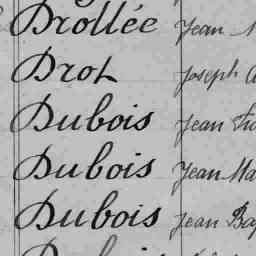 Drollée Jean
Drot Joseph
Dubois Jean
Dubois Jean
Dubois Jean